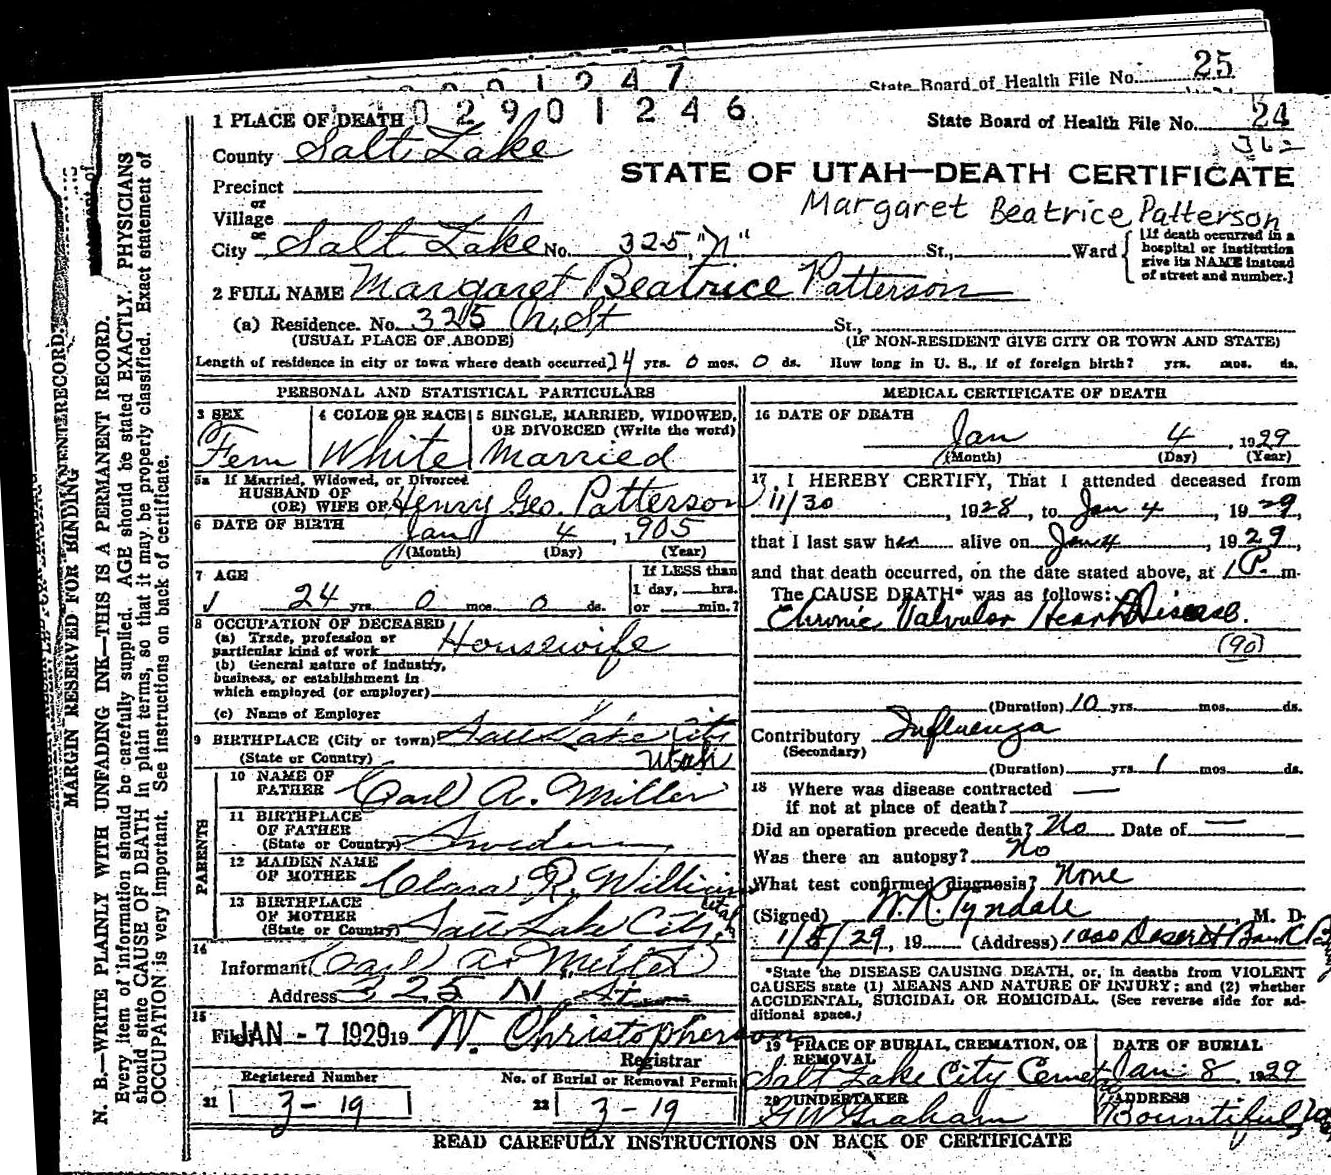 001247
State Board of Health File No. 25
02901246
State Board of Health File No. 24
362
1 PLACE OF DEATH
County Salt Lake
STATE OF UTAH—DEATH CERTIFICATE
Precinct
or
Village
Margaret Beatrice Patterson
or
City Salt Lake No. 325 "N" St., Ward
[If death occurred in a hospital or institution give its NAME instead of street and number.]
2 FULL NAME Margaret Beatrice Patterson
(a) Residence. No. 325 N. St St.,
(USUAL PLACE OF ABODE) (IF NON-RESIDENT GIVE CITY OR TOWN AND STATE)
Length of residence in city or town where death occurred 24 yrs. 0 mos. 0 ds. How long in U. S., if of foreign birth? yrs. mos. ds.
PERSONAL AND STATISTICAL PARTICULARS
3 SEX 4 COLOR OR RACE 5 SINGLE, MARRIED, WIDOWED, OR DIVORCED (Write the word)
Fem White Married
5a If Married, Widowed, or Divorced
HUSBAND OF
(OR) WIFE OF Henry Geo. Patterson
6 DATE OF BIRTH
Jan 4, 1905
(Month) (Day) (Year)
7 AGE If LESS than
1 day, hrs.
24 yrs. 0 mos. 0 ds. or min.?
8 OCCUPATION OF DECEASED
(a) Trade, profession or
particular kind of work Housewife
(b) General nature of industry,
business, or establishment in
which employed (or employer)
(c) Name of Employer
9 BIRTHPLACE (City or town) Salt Lake City
(State or Country) Utah
PARENTS
10 NAME OF
FATHER Carl A. Miller
11 BIRTHPLACE
OF FATHER
(State or Country) Sweden
12 MAIDEN NAME
OF MOTHER Clara R. Williams
13 BIRTHPLACE
OF MOTHER
(State or Country) Salt Lake City, Utah
14
Informant Carl A. Miller
Address 325 N St
15
Filed JAN - 7 1929 19 W. Christopherson
Registrar
Registered Number No. of Burial or Removal Permit
21 3-19 22 3-19
MEDICAL CERTIFICATE OF DEATH
16 DATE OF DEATH
Jan 4 1929
(Month) (Day) (Year)
17 I HEREBY CERTIFY, That I attended deceased from
11/30, 1928, to Jan 4, 1929,
that I last saw her alive on Jan 4, 1929,
and that death occurred, on the date stated above, at 1 P. m.
The CAUSE DEATH* was as follows:
Chronic Valvular Heart Disease.
(90)
(Duration) 10 yrs. mos. ds.
Contributory Influenza
(Secondary)
(Duration) yrs. 1 mos. ds.
18 Where was disease contracted
if not at place of death?
Did an operation precede death? No Date of
Was there an autopsy? No
What test confirmed diagnosis? None
(Signed) W. R. Tyndale, M. D.
1/5/29, 19 (Address) 1000 Deseret Bank
*State the DISEASE CAUSING DEATH, or, in deaths from VIOLENT
CAUSES state (1) MEANS AND NATURE OF INJURY; and (2) whether
ACCIDENTAL, SUICIDAL OR HOMICIDAL. (See reverse side for ad-
ditional space.)
19 PLACE OF BURIAL, CREMATION, OR
REMOVAL
DATE OF BURIAL
Salt Lake City Cemetery Jan 8, 1929
20 UNDERTAKER ADDRESS
G W Graham Bountiful
READ CAREFULLY INSTRUCTIONS ON BACK OF CERTIFICATE
MARGIN RESERVED FOR BINDING
N. B.—WRITE PLAINLY WITH UNFADING INK—THIS IS A PERMANENT RECORD.
Every item of information should be carefully supplied. AGE should be stated EXACTLY. PHYSICIANS
should state CAUSE OF DEATH in plain terms, so that it may be properly classified. Exact statement of
OCCUPATION is very important. See instructions on back of certificate.